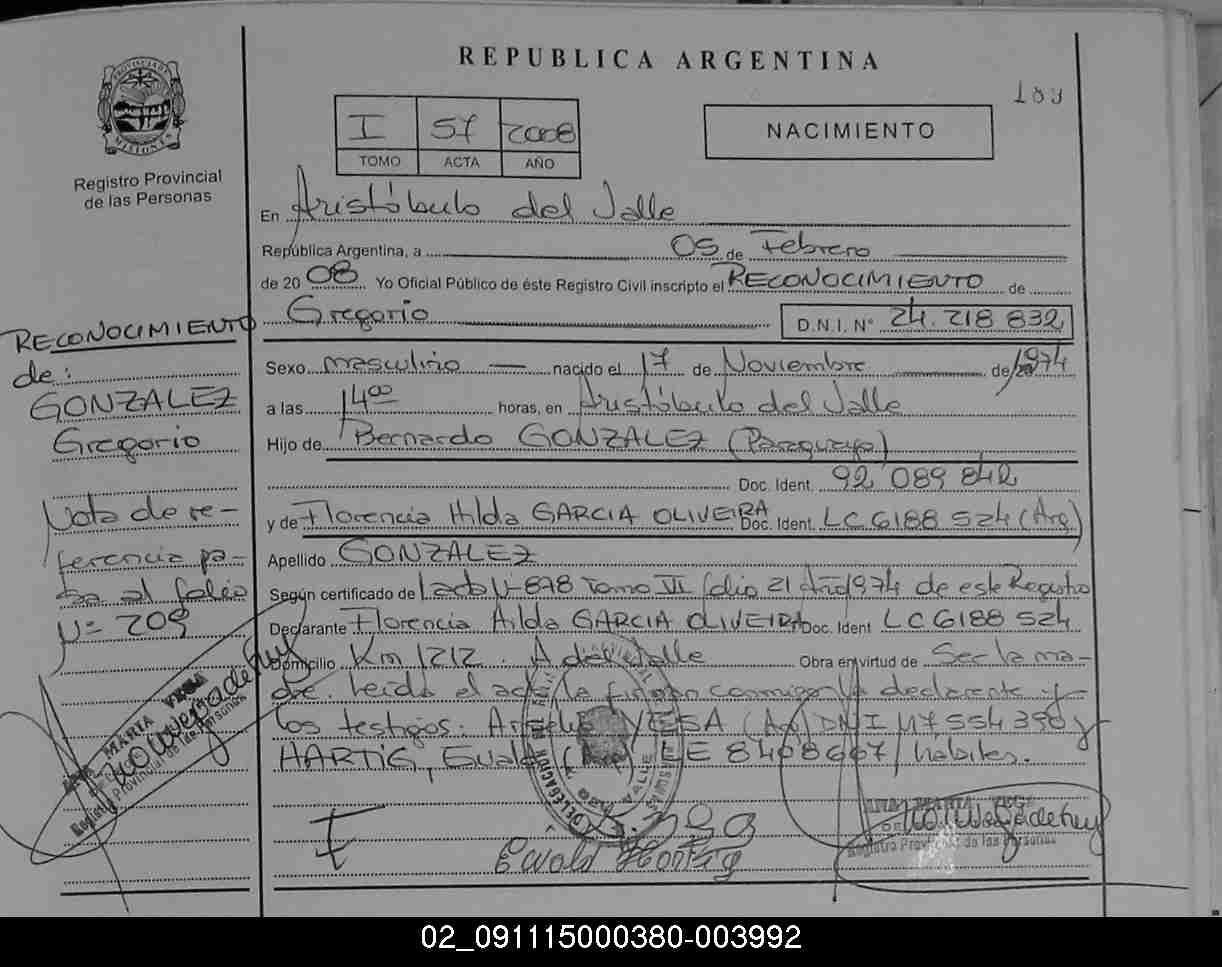 REPUBLICA ARGENTINA
189
PROVINCIA DE
MISIONES
Registro Provincial
de las Personas
I 57 2008
TOMO ACTA AÑO
NACIMIENTO
En Aristóbulo del Valle
República Argentina, a 05 de Febrero
de 20 08 Yo Oficial Público de éste Registro Civil inscripto el RECONOCIMIENTO de
Gregorio D.N.I. N° 24.218 832
Sexo masculino nacido el 17 de Noviembre de 1974
a las 14 00 horas, en Aristóbulo del Valle
Hijo de Bernardo GONZALEZ (Paraguayo)
Doc. Ident. 92 089 842
y de Florencia Hilda GARCIA OLIVEIRA Doc. Ident. LC 6188 524 (Arg)
Apellido GONZALEZ
Según certificado de Tomo VI folio 21 Año 1974 de este Registro
Declarante Florencia Hilda GARCIA OLIVEIRA Doc. Ident LC 6188 524
Domicilio Km 1212. A del Valle Obra en virtud de Ser la ma-
dre. Leida el acta la firman conmigo la declarante y
los testigos: (Arg) DNI M7 554 390 y
HARTIG, Evald LE 8408667 / habiles.
RECONOCIMIENTO
de:
GONZALEZ
Gregorio
Nota de re-
ferencia pa-
sa al folio
N= 209
MARTA VEGA
Registro Provincial de las Personas
DELEGACION
DEL VALLE
Ewald Hartig
MARTA VEGA
Registro Provincial de las Personas
02_091115000380-003992